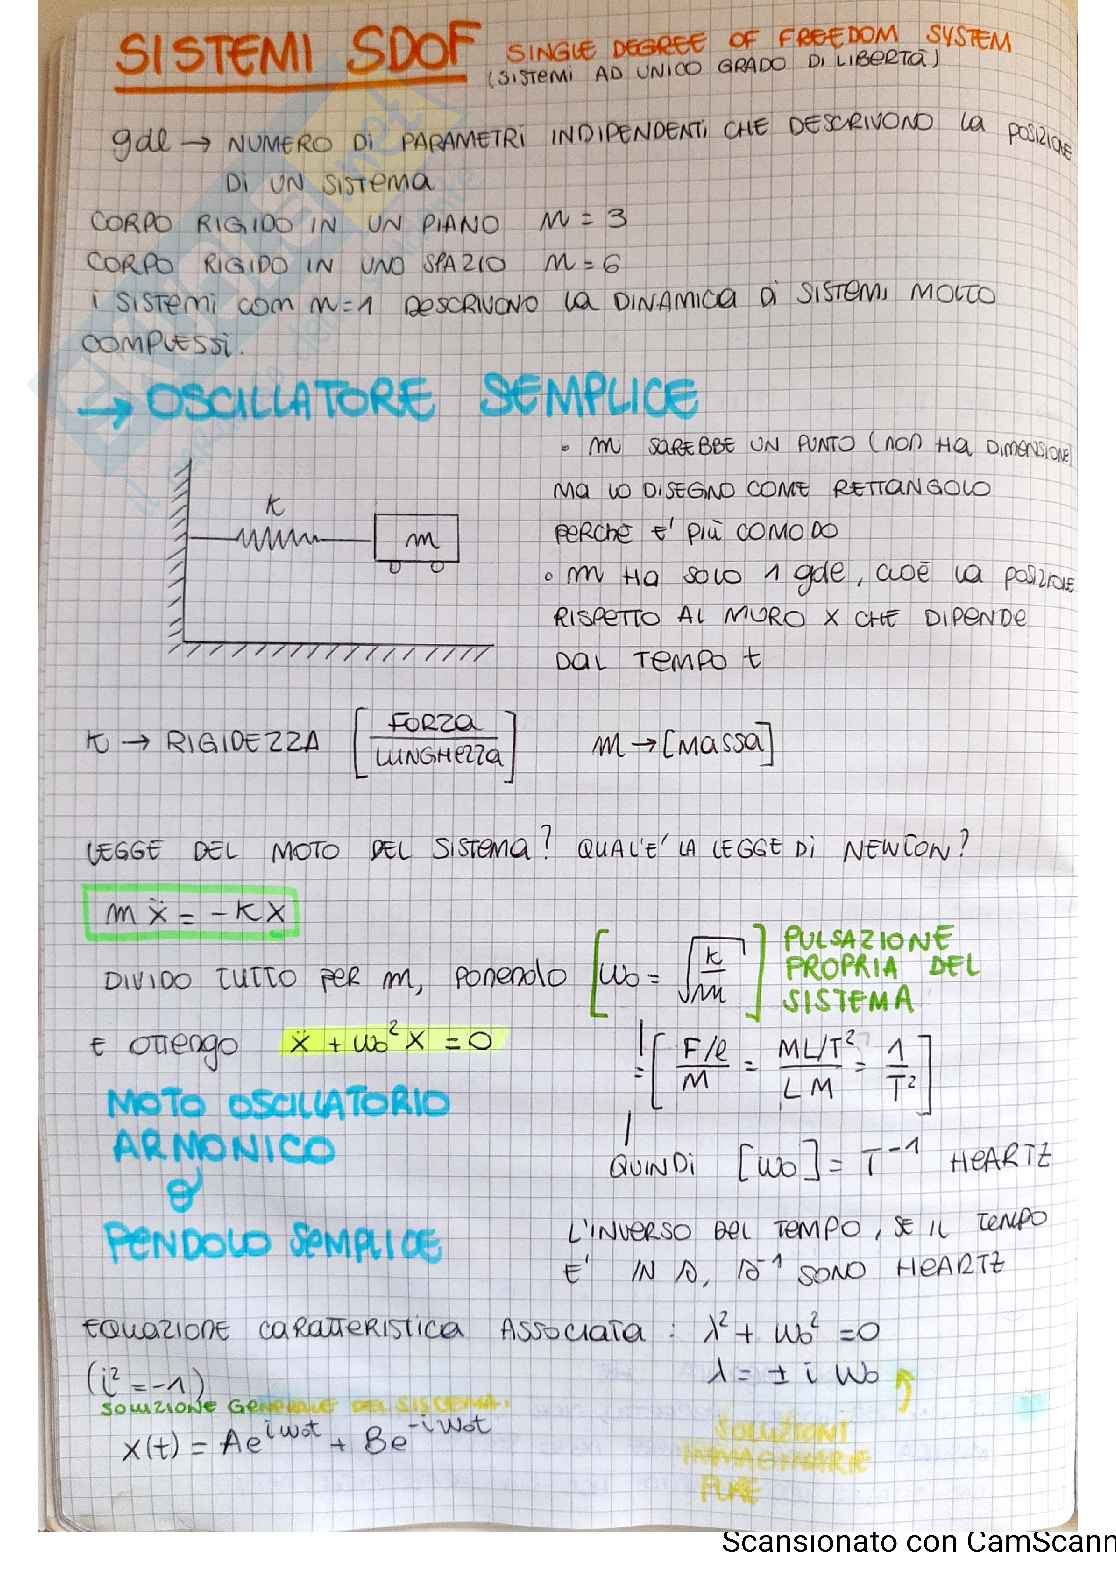 SISTEMI SDOF SINGLE DEGREE OF FREEDOM SYSTEM
(SISTEMI AD UNICO GRADO DI LIBERTÀ)
gdl → NUMERO DI PARAMETRI INDIPENDENTI CHE DESCRIVONO LA POSIZIONE
DI UN SISTEMA
CORPO RIGIDO IN UN PIANO n = 3
CORPO RIGIDO IN UNO SPAZIO n = 6
I SISTEMI CON n=1 DESCRIVONO LA DINAMICA DI SISTEMI MOLTO
COMPLESSI.
→ OSCILLATORE SEMPLICE
• m SAREBBE UN PUNTO (NON HA DIMENSIONE)
MA LO DISEGNO COME RETTANGOLO
PERCHÈ E' PIÙ COMODO
• m HA SOLO 1 gdl, CIOÈ LA POSIZIONE
RISPETTO AL MURO X CHE DIPENDE
DAL TEMPO t
K
m
K → RIGIDEZZA [FORZA/LUNGHEZZA] m → [MASSA]
LEGGE DEL MOTO DEL SISTEMA? QUAL'E' LA LEGGE DI NEWTON?
m ẍ = - K X
DIVIDO TUTTO PER m, PONENDO [ω₀ = √(K/m)] PULSAZIONE
PROPRIA DEL
SISTEMA
E OTTENGO ẍ + ω₀² X = 0
= [(F/l)/M = (ML/T²)/(LM) = 1/T²]
MOTO OSCILLATORIO
ARMONICO
QUINDI [ω₀] = T⁻¹ HEARTZ
PENDOLO SEMPLICE
L'INVERSO DEL TEMPO, SE IL TEMPO
E' IN s, s⁻¹ SONO HEARTZ
EQUAZIONE CARATTERISTICA ASSOCIATA : λ² + ω₀² = 0
(i² = -1) λ = ± i ω₀
SOLUZIONE GENERALE DEL SISTEMA.
x(t) = Ae^{iω₀t} + Be^{-iω₀t}
SOLUZIONI
IMMAGINARIE
PURE
Scansionato con CamScann